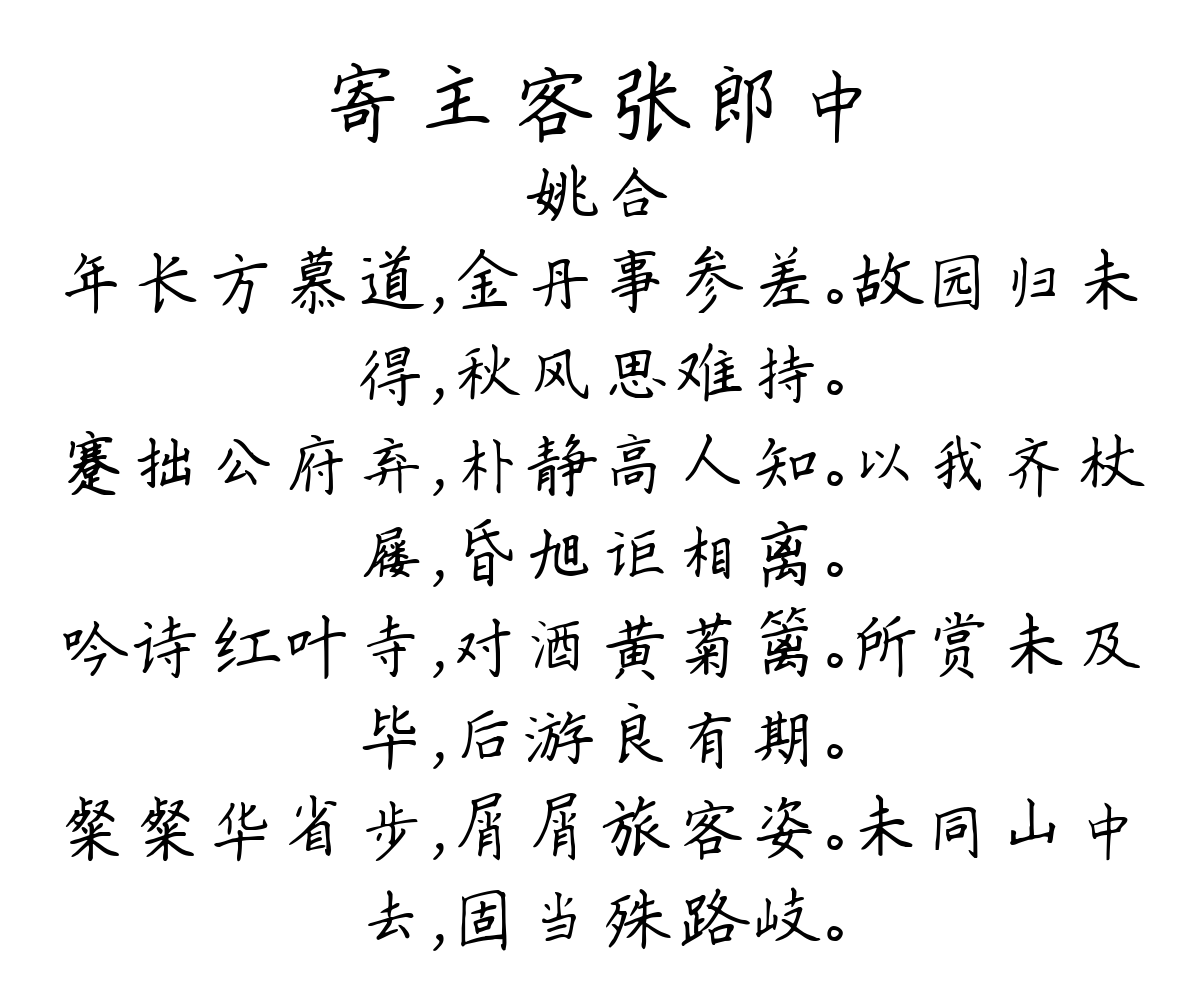 寄主客张郎中
姚合
年长方慕道,金丹事参差。故园归未
得,秋风思难持。
蹇拙公府弃,朴静高人知。以我齐杖
屦,昏旭讵相离。
吟诗红叶寺,对酒黄菊篱。所赏未及
毕,后游良有期。
粲粲华省步,屑屑旅客姿。未同山中
去,固当殊路岐。